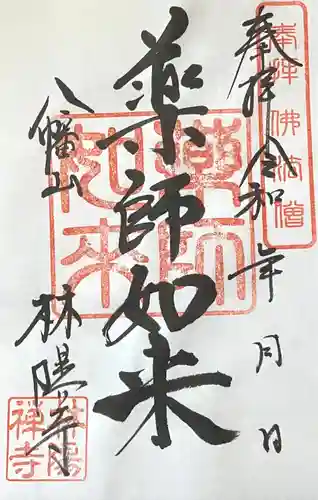 奉拝 令和 年 月 日
奉拝佛法僧
薬師如来
薬師如来
八幡山
林陽寺
林陽禅寺